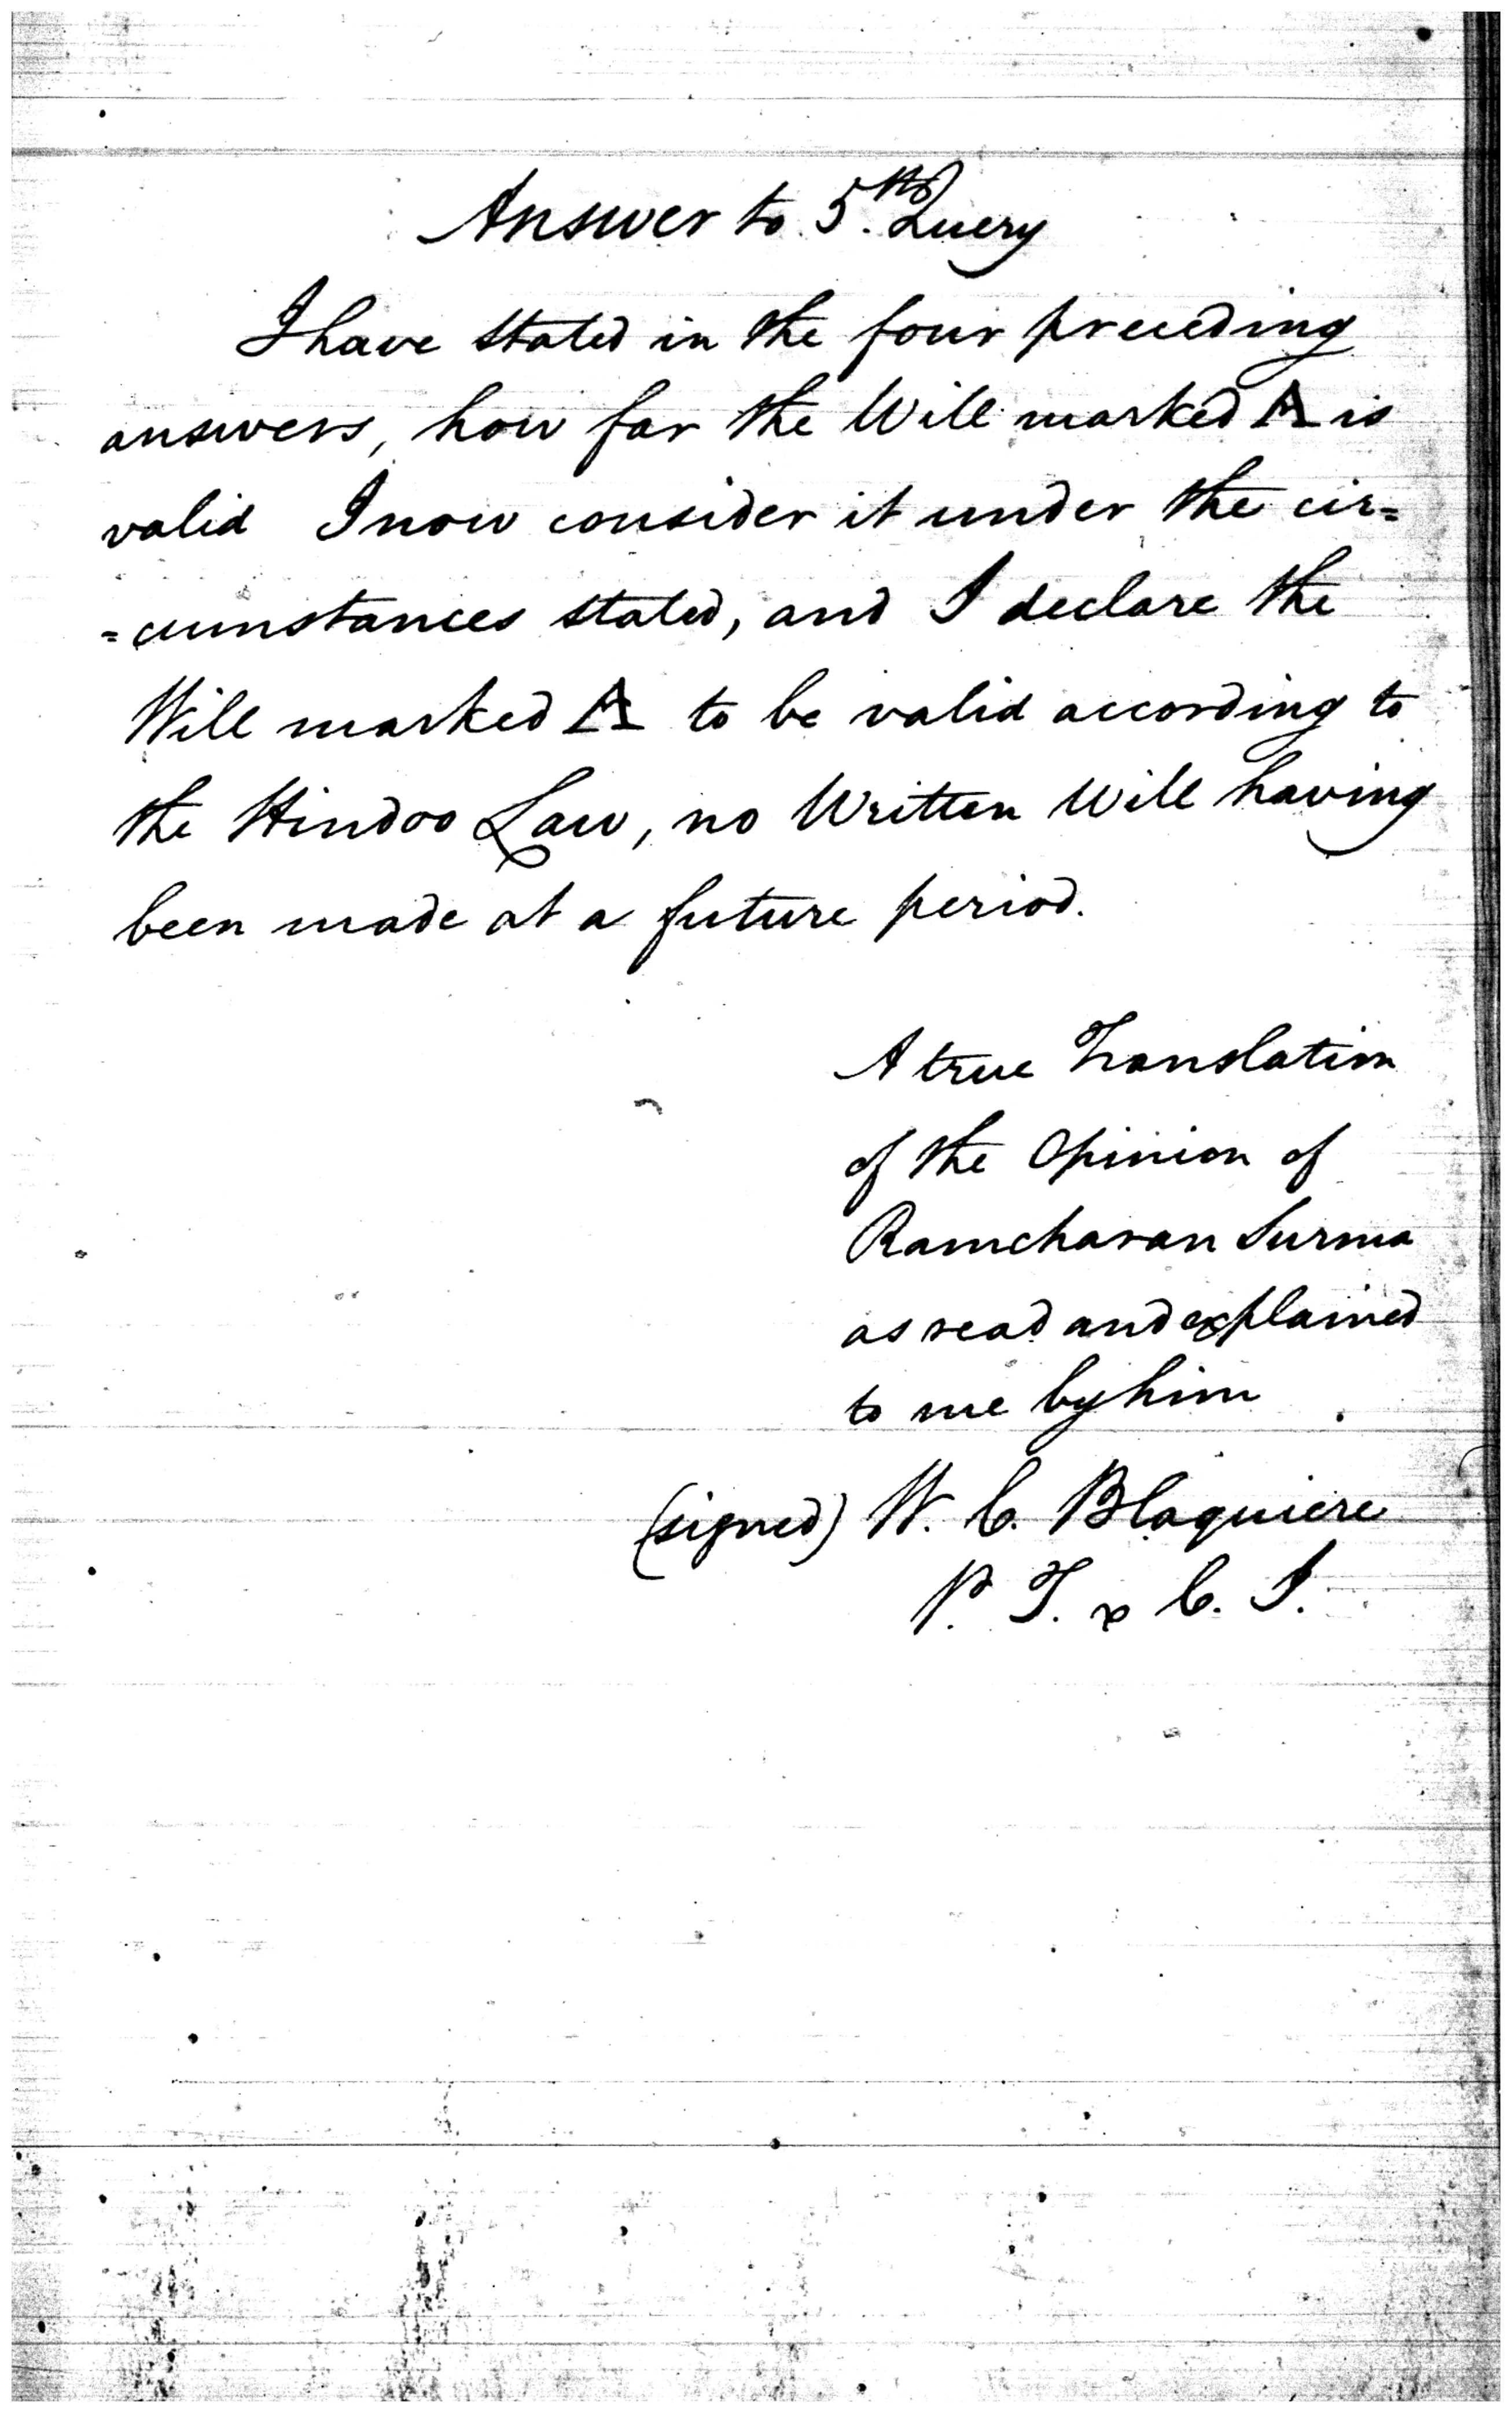 Answer to 5.th Query
I have stated in the four preceding
answers, how far the Will marked A is
valid I now consider it under the cir=
=cumstances stated, and I declare the
Will marked A to be valid according to
the Hindoo Law, no Written Will having
been made at a future period.
A true Translation
of the Opinion of
Ramcharan Surma
as read and explained
to me by him
(signed) W. C. Blaquiere
P. T. & C. I.